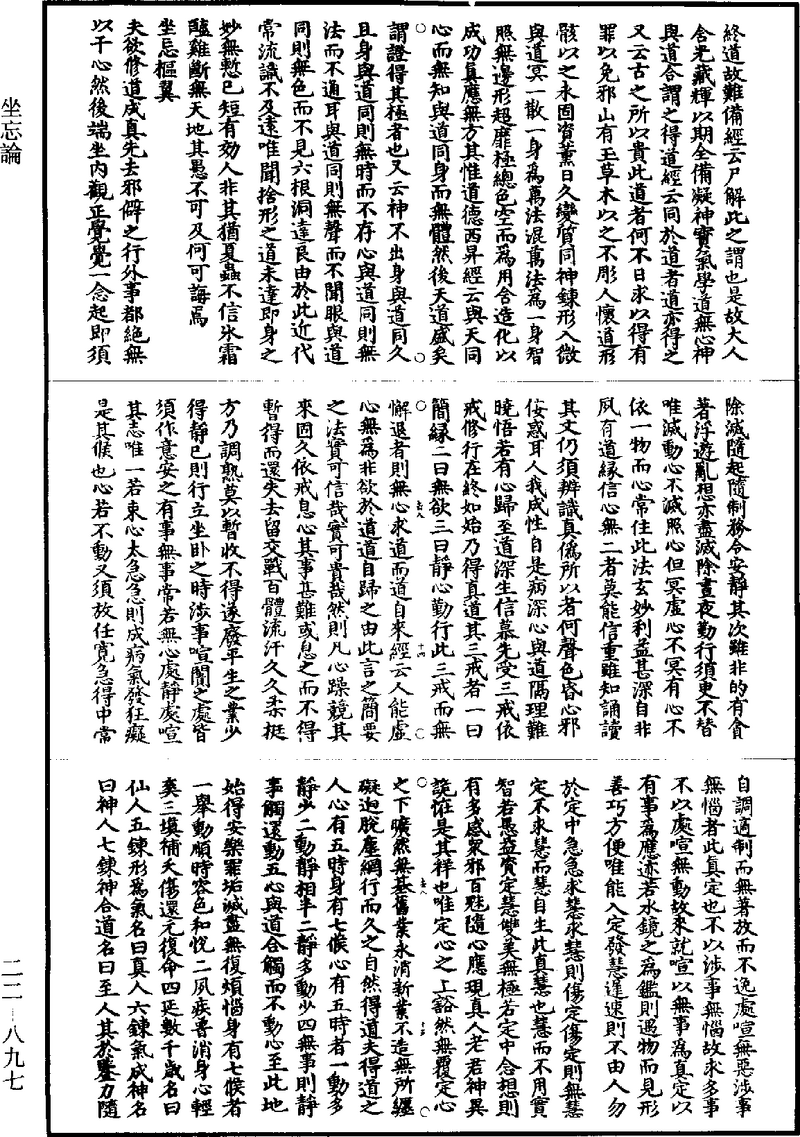 坐忘論
終道故難備經云尸解此之謂也是故大人
含光藏輝以期全備凝神寶氣學道無心神
與道合謂之得道經云同於道者道亦得之
又云古之所以貴此道者何不日求以得有
罪以免邪山有玉草木以之不彫人懷道形
骸以之永固資薰日久變質同神鍊形入微
與道冥一散一身為萬法混萬法為一身智
照無邊形超靡極總色空而為用含造化以
成功真應無方其惟道德西昇經云與天同
心而無知與道同身而無體然後天道盛矣
謂證得其極者也又云神不出身與道同久
且身與道同則無時而不存心與道同則無
法而不通耳與道同則無聲而不聞眼與道
同則無色而不見六根洞達良由於此近代
常流識不及遠唯聞捨形之道未達即身之
妙無慙已短有効人非其猶夏蟲不信氷霜
醯雞斷無天地其愚不可及何可誨焉
坐忘樞翼
夫欲修道成真先去邪僻之行外事都絕無
以干心然後端坐內觀正覺覺一念起即須
除滅隨起隨制務令安靜其次雖非的有貪
著浮遊亂想亦盡滅除晝夜勤行須臾不替
唯滅動心不滅照心但冥虛心不冥有心不
依一物而心常住此法玄妙利益甚深自非
夙有道緣信心無二者莫能信重雖知誦讀
其文仍須辨識真偽所以者何聲色昏心邪
佞惑耳人我成性自是病深心與道隔理難
曉悟若有心歸至道深生信慕先受三戒依
戒修行在終如始乃得真道其三戒者一曰
簡緣二曰無欲三曰靜心勤行此三戒而無
懈退者則無心求道而道自來經云人能虛
心無為非欲於道道自歸之由此言之簡要
之法實可信哉實可貴哉然則凡心躁競其
來固久依戒息心其事甚難或息之而不得
暫得而還失去留交戰百體流汗久久柔挺
方乃調熟莫以暫收不得遂廢平生之業少
得靜已則行立坐卧之時涉事喧闐之處皆
須作意安之有事無事常若無心處靜處喧
其志唯一若束心太急急則成病氣發狂癡
是其候也心若不動又須放任寬急得中常
自調適制而無著放而不逸處喧無惡涉事
無惱者此真定也不以涉事無惱故求多事
不以處喧無動故來就喧以無事為真定以
有事為應迹若水鏡之為鑑則遇物而見形
善巧方便唯能入定發慧遲速則不由人勿
於定中急急求慧求慧則傷定傷定則無慧
定不求慧而慧自生此真慧也慧而不用實
智若愚益資定慧雙美無極若定中念想則
有多感衆邪百魅隨心應現真人老君神異
詭怪是其祥也唯定心之上豁然無覆定心
之下曠然無基舊業永消新業不造無所纏
礙迥脫塵網行而久之自然得道夫得道之
人心有五時身有七候心有五時者一動多
靜少二動靜相半三靜多動少四無事則靜
事觸還動五心與道合觸而不動心至此地
始得安樂罪垢滅盡無復煩惱身有七候者
一舉動順時容色和悅二夙疾普消身心輕
爽三填補夭傷還元復命四延數千歲名曰
仙人五鍊形為氣名曰真人六鍊氣成神名
曰神人七鍊神合道名曰至人其於鑒力隨
二二—八九七